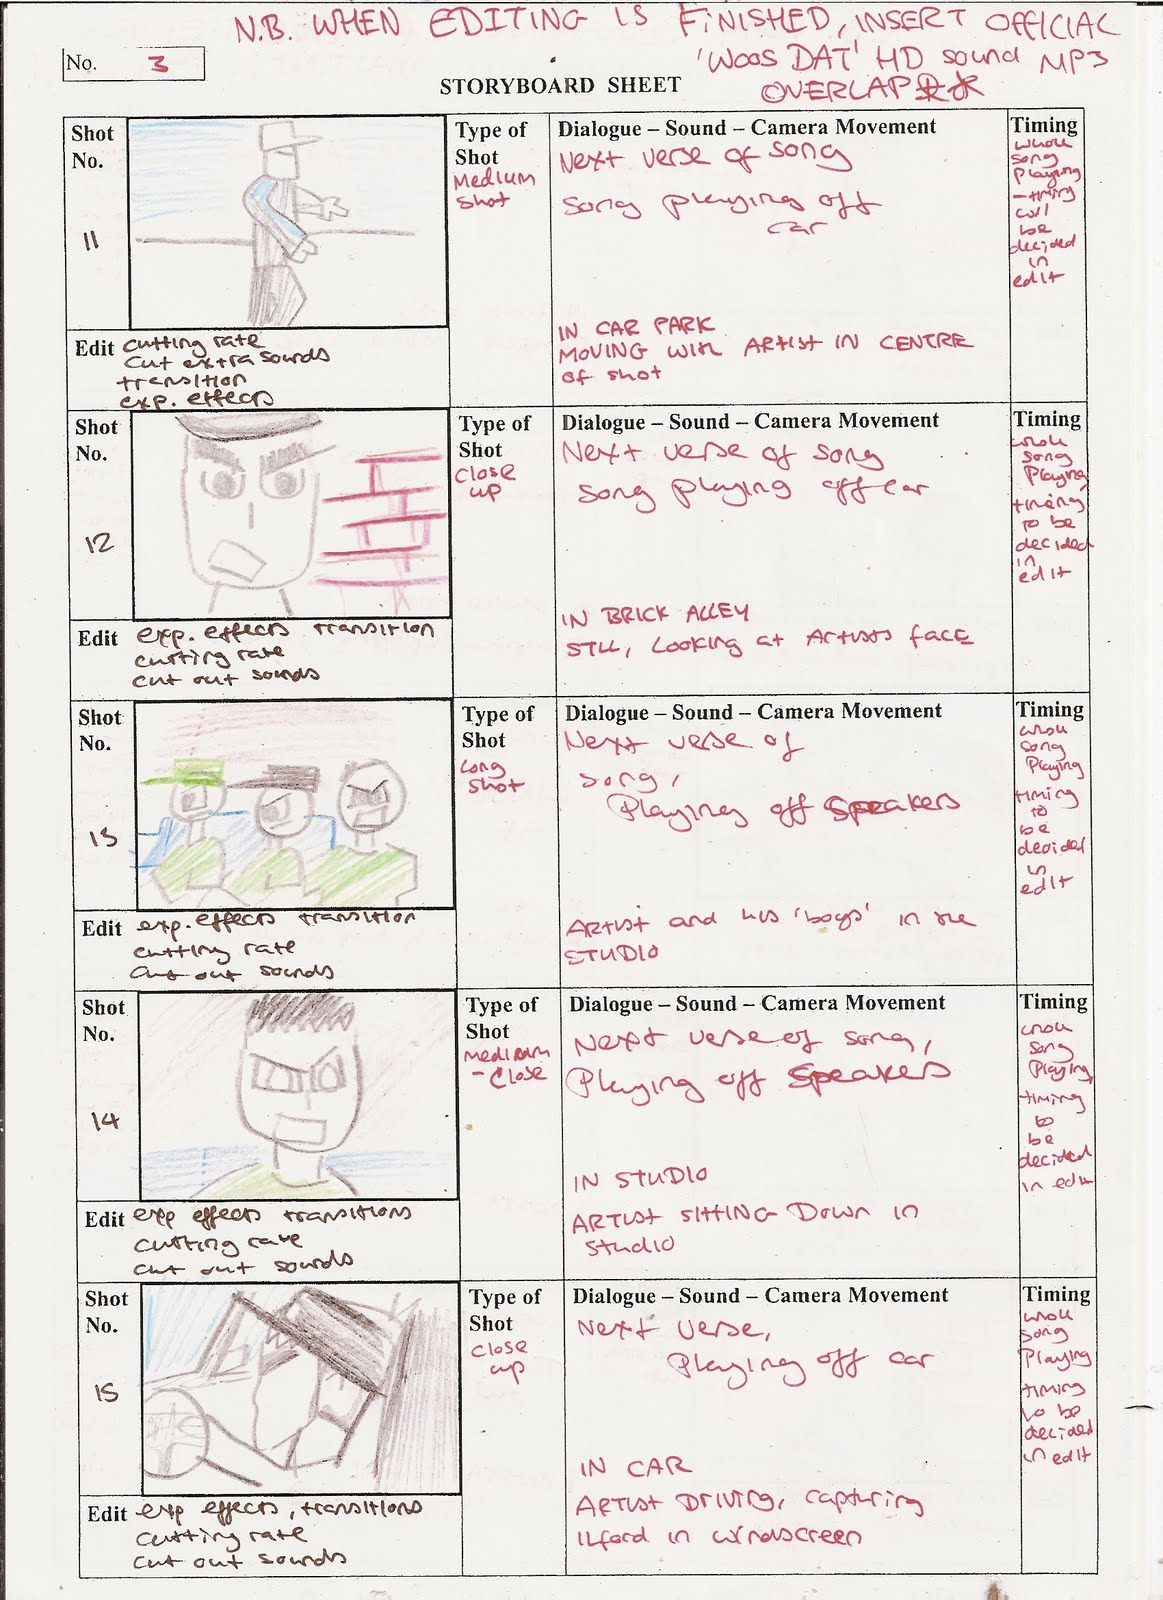 N.B. WHEN EDITING IS FINISHED, INSERT OFFICIAL
'WOOS DAT' HD sound MP3
OVERLAP
No. 3
STORYBOARD SHEET
Shot No.
11
Type of Shot
Medium shot
Dialogue – Sound – Camera Movement
Next verse of song
song playing off
car
IN CAR PARK
MOVING WITH ARTIST IN CENTRE
of shot
Timing
whole
song
playing
- timing
will
be
decided
in
edit
Edit cutting rate
cut extra sounds
transition
exp. effects
Shot No.
12
Type of Shot
close up
Dialogue – Sound – Camera Movement
Next verse of song
song playing off car
IN BRICK ALLEY
STILL, Looking at Artists face
Timing
whole
song
Playing
timing
to be
decided
in
edit
Edit exp. effects transition
cutting rate
cut out sounds
Shot No.
13
Type of Shot
Long shot
Dialogue – Sound – Camera Movement
Next verse of
song,
Playing off speakers
ARTIST and his 'boys' in the
STUDIO
Timing
whole
song
Playing
timing
to
be
decided
in
edit
Edit exp. effects transition
cutting rate
cut out sounds
Shot No.
14
Type of Shot
medium
- close
Dialogue – Sound – Camera Movement
Next verse of song,
Playing off speakers
IN STUDIO
ARTIST SITTING DOWN in
studio
Timing
whole
song
Playing
timing
to
be
decided
in edit
Edit exp effects transitions
cutting rate
cut out sounds
Shot No.
15
Type of Shot
close up
Dialogue – Sound – Camera Movement
Next verse,
Playing off car
IN CAR
ARTIST DRIVING, capturing
Ilford in windscreen
Timing
whole
song
Playing
timing
to be
decided
in edit
Edit exp effects, transitions
cutting rate
cut out sounds